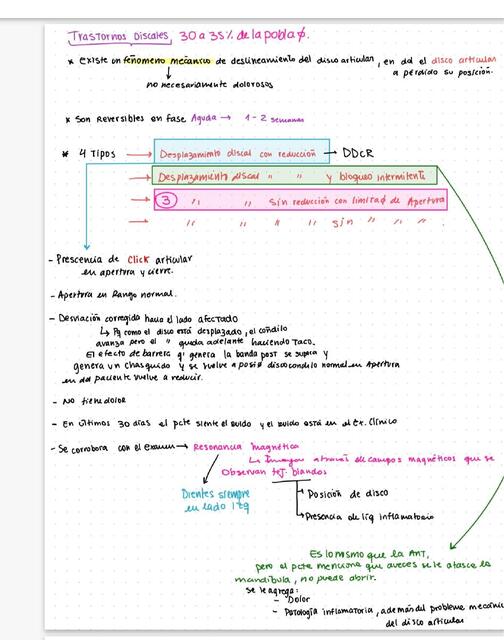 Trastornos Discales, 30 a 35% de la poblaø.
* existe un fenómeno mecánico de deslineamiento del disco articular, en dd el disco articular
a perdido su posición.
↓
no necesariamente dolorosos
* Son Reversibles en fase Aguda → 1-2 semanas
* 4 Tipos → Desplazamiento discal con reducción → DDcR
→ Desplazamiento discal " " y bloqueo intermitente
→ 3 " " sin reducción con limitaø de Apertura
→ " " " " sin " " " .
- Prescencia de Click articular
en apertura y cierre.
- Apertura en Rango normal.
- Desviación corregida hacia el lado afectado
↳ Pq como el disco está desplazado, el cóndilo
avanza pero el " queda adelante haciendo taco.
El efecto de barrera q' genera la banda post se supera y
genera un chasquido y se vuelve a posiø discocondilo normal en Apertura
en dd paciente vuelve a reducir.
- No tiene dolor
- En últimos 30 días el pcte siente el ruido y el ruido está en el Ex. Clínico
- Se corrobora con el examen → Resonancia magnética
↳ Imagen a través de campos magnéticos que se
Observan tej. blandos
Dientes siempre
en lado izq
→ Posición de disco
→ Presencia de líq inflamatorio
Es lo mismo que la ANT,
pero el pcte menciona que aveces se le atasca la
mandíbula, no puede abrir.
Se le agrega:
- Dolor
- Patología inflamatoria, además del problema mecánic
del disco articular